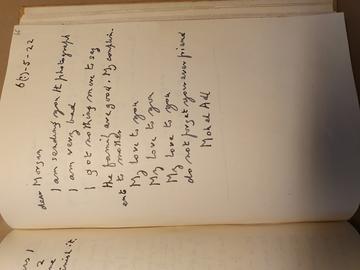 6(?)-5-22
dear Morgan
I am sending you the photograph
I am very bad
I got nothing more to say
the family are good. My complim
ents to mother
My love to you
My love to you
My love to you
do not forget your ever friend
Moh el Adl